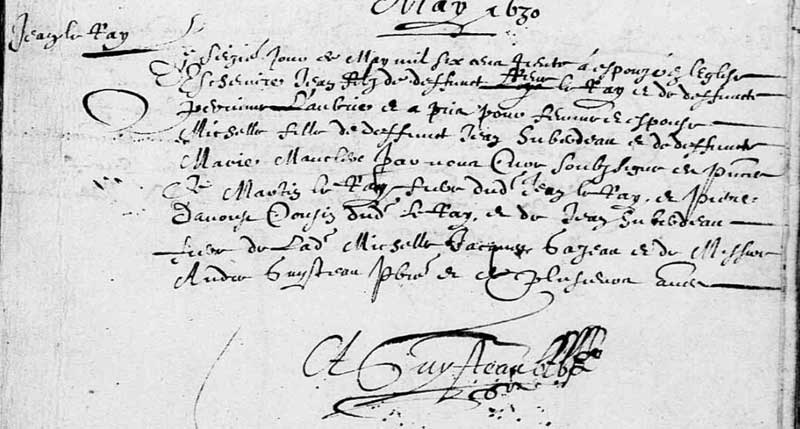 May 1630
Jean le Ray
jour de May mil six cens trente a espouzé en leglise
Jean filz de deffunct le Ray et de deffuncte
Perrinne et a pris pour femme et espouse
Michelle fille de deffunct Jean Suberdeau et de deffuncte
Marie Mauclere par nous Curé soubzsigné en
de Martin le Ray frere dud Jean le Ray, et Pierre
Danouse Cousin dud le Ray, et de Jean Suberdeau
frere de Lad Michelle Jacques et de Messire
André Guysteau pbre et de plusieurs autres
A Guysteau